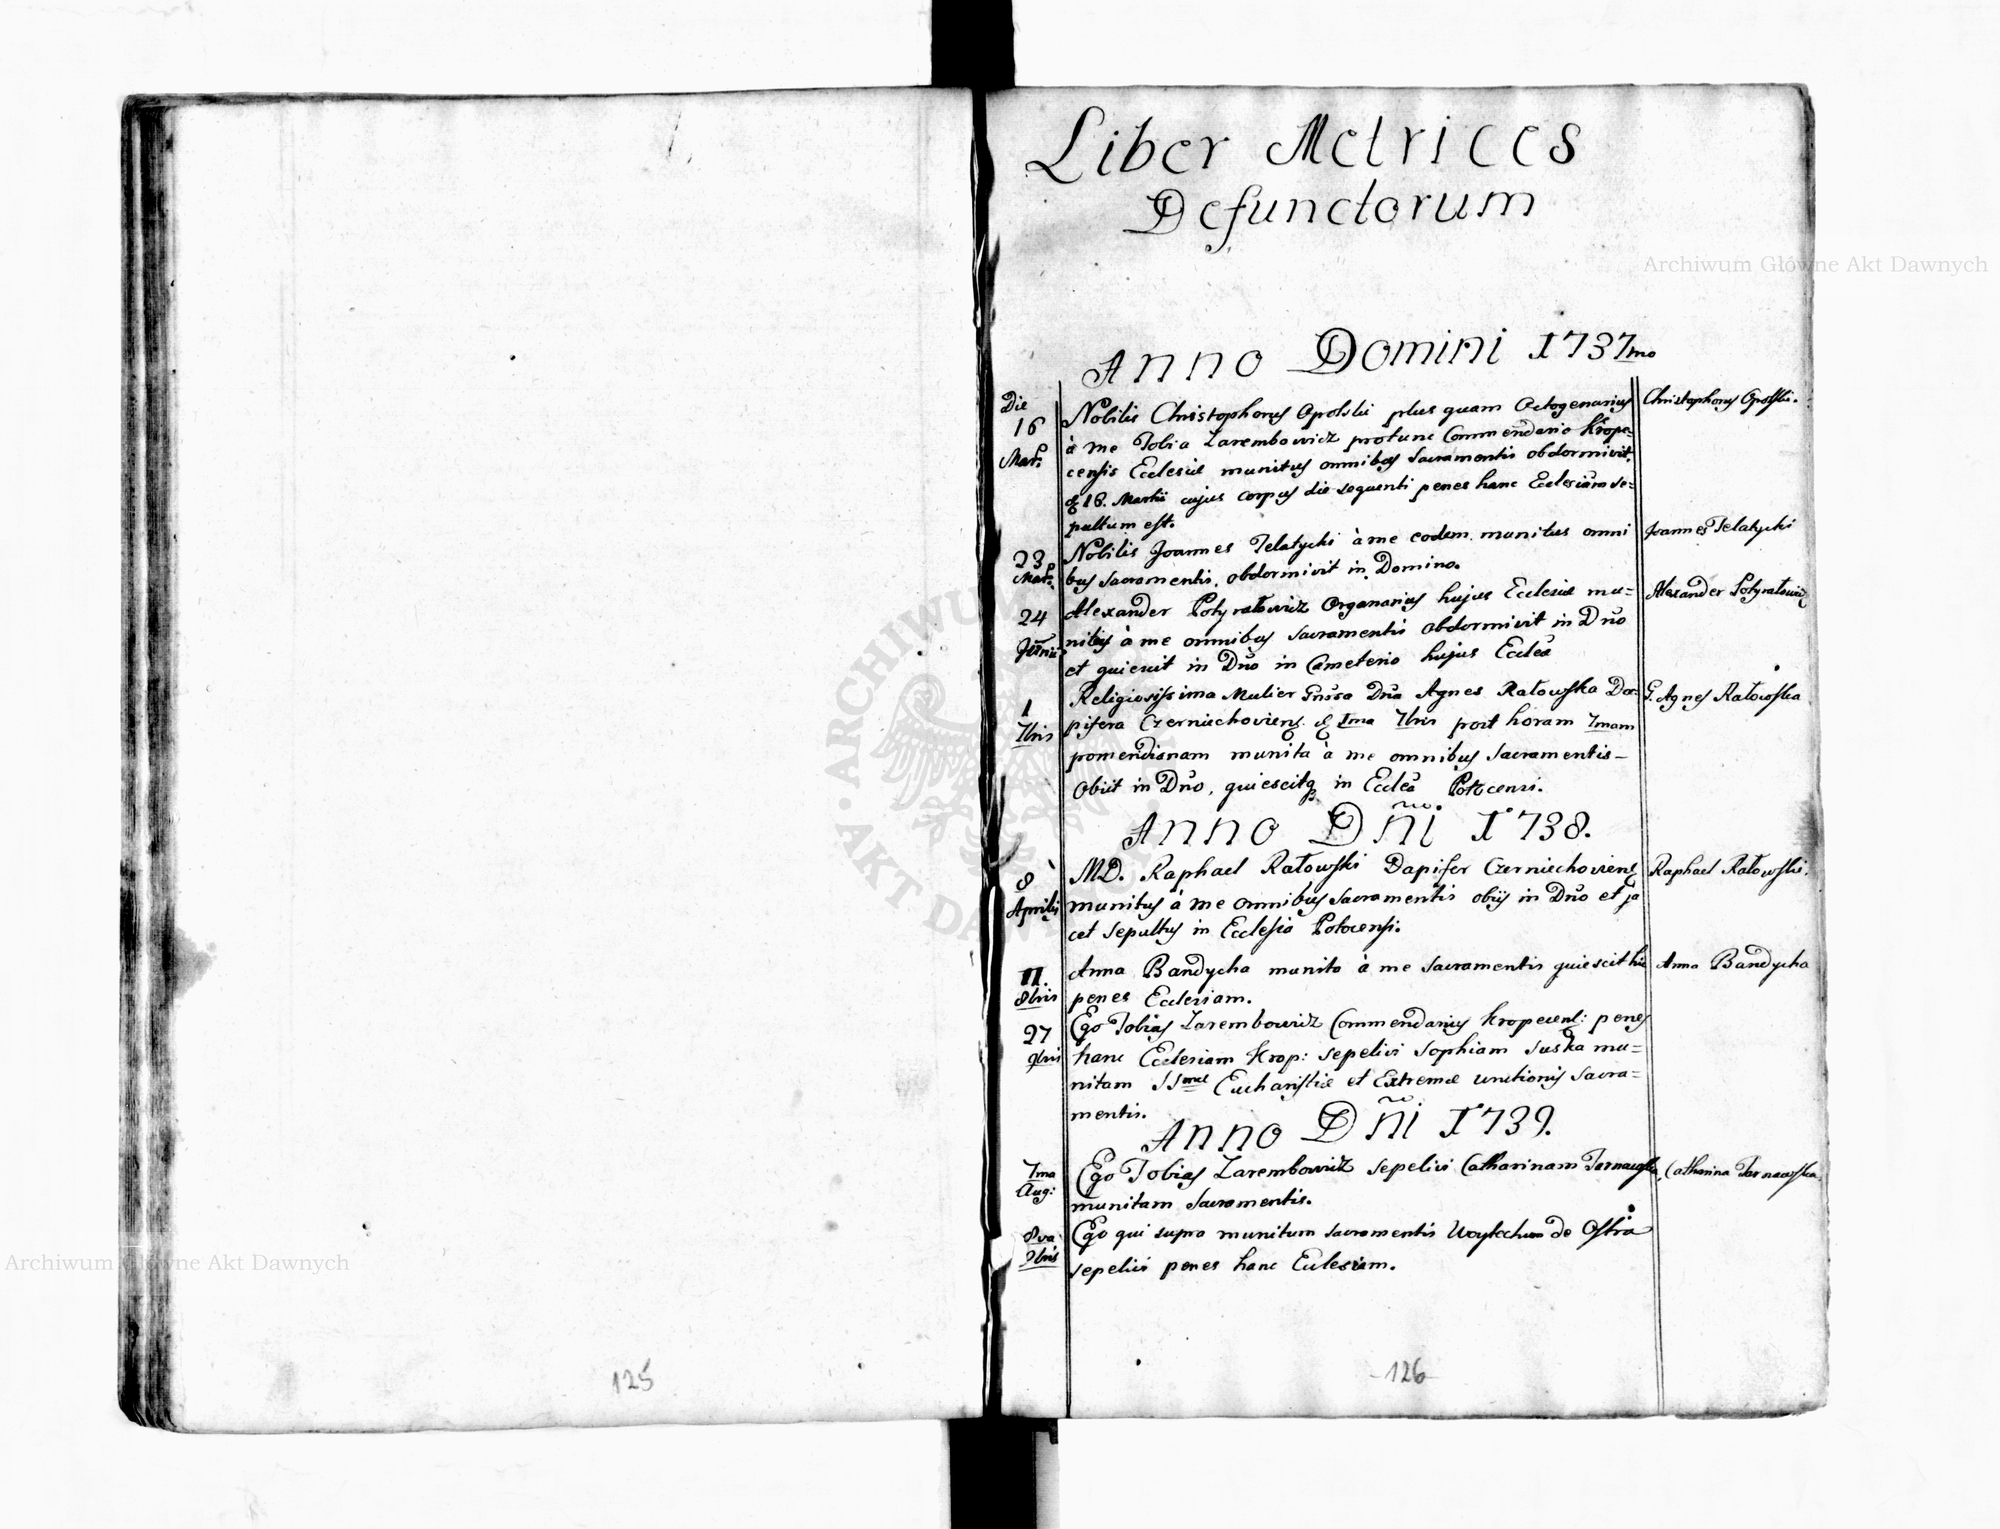 Liber Metrices
Defunctorum
Archiwum Główne Akt Dawnych
Anno Domini 1737mo
Die
16
Mar:
Nobilis Christophorus Opolski plus quam Octogenarius
à me Tobia Zarembowicz protunc Commendario Krope-
censis Ecclesiæ munitus omnibus Sacramentis obdormivit
16. Martii cujus corpus die sequenti penes hanc Ecclesiam se-
pultum est.
Christophorus Opolski.
23
Mar:
Nobilis Joannes Telatycki à me eodem munitus omni
bus Sacramentis, obdormivit in Domino.
Joannes Telatycki
24
Alexander Potyrałowicz Organarius hujus Ecclesiæ mu-
nitus à me omnibus Sacramentis obdormivit in Dño
et quievit in Dño in Cæmeterio hujus Eccleã
Alexander Potyrałowicz
1
7bris
Religiosissima Mulier Dña Agnes Ratowska Da-
pifera Czerniechoviens. 1ma 7bris post horam 7mam
pomeridianam munita à me omnibus Sacramentis
Obiit in Dño, quiescitq in Eccleã Potocensi.
G. Agnes Ratowska
Anno Dñi 1738.
8
Aprilis
MD. Raphael Ratowski Dapifer Czerniechoviens
munitus à me omnibus Sacramentis obiit in Dño et ja
cet sepultus in Ecclesia Potocensi.
Raphael Ratowski.
11.
8bris
Anna Bandycha munita à me Sacramentis quiescit hic
penes Ecclesiam.
Anna Bandycha
27
9bris
Ego Tobias Zarembowicz Commendarius Kropecens: penes
hanc Ecclesiam Krop: sepelivi Sophiam Suska mu-
nitam SSmæ Eucharistiæ et Extremæ unctionis Sacra-
mentis.
Anno Dñi 1739.
7ma
Aug:
Ego Tobias Zarembowicz sepelivi Catharinam Tarnawska
munitam Sacramentis.
Catharina Tarnawska
8va
9bris
Ego qui supra munitum sacramentis Woytechum de Ostra
sepelivi penes hanc Ecclesiam.
Archiwum Główne Akt Dawnych
125
-126-
ARCHIWUM
AKT DAWNYCH